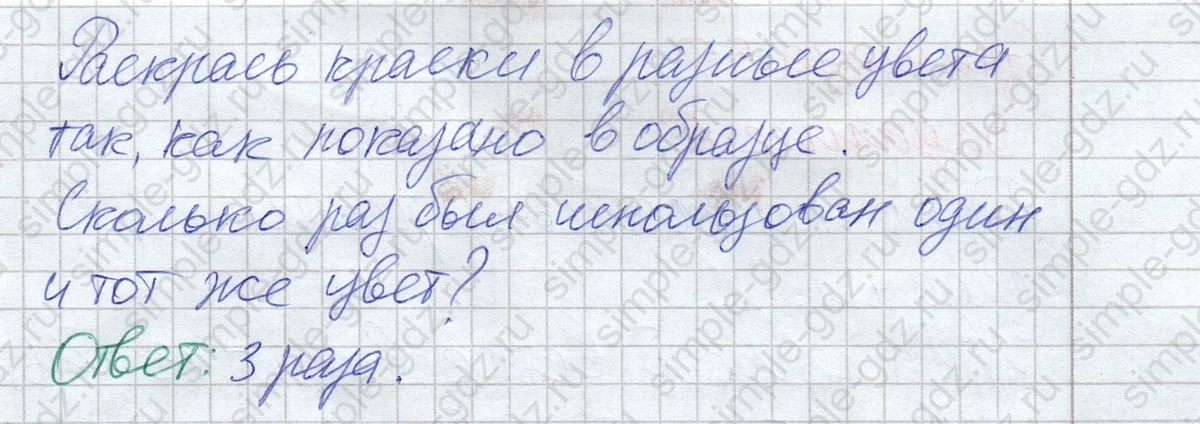 Раскрась краски в разные цвета
так, как показано в образце.
Сколько раз был использован один
и тот же цвет?
Ответ: 3 раза.
simple-gdz.ru